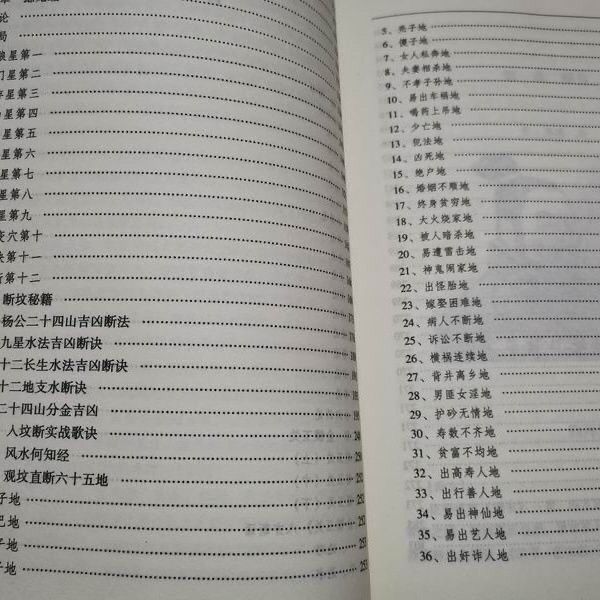 论
局
狼星第一
门星第二
星第三
星第四
星第五
星第六
星第七
星第八
星第九
变穴第十
诀第十一
断第十二
断坟秘籍
杨公二十四山吉凶断法
九星水法吉凶断诀
十二长生水法吉凶断诀
十二地支水断诀
二十四山分金吉凶
入坟断实战歌诀
风水何知经
观坟直断六十五地
子地
地
子地
地
5、秃子地
6、傻子地
7、女人私奔地
8、夫妻相杀地
9、不孝子孙地
10、易出车祸地
11、喝药上吊地
12、少亡地
13、犯法地
14、凶死地
15、绝户地
16、婚姻不顺地
17、终身贫穷地
18、大火烧家地
19、被人暗杀地
20、易遭雷击地
21、神鬼闹家地
22、出怪胎地
23、嫁娶困难地
24、病人不断地
25、诉讼不断地
26、横祸连续地
27、背井离乡地
28、男匪女淫地
29、护砂无情地
30、寿数不齐地
31、贫富不均地
32、出高寿人地
33、出行善人地
34、易出神仙地
35、易出艺人地
36、出奸诈人地